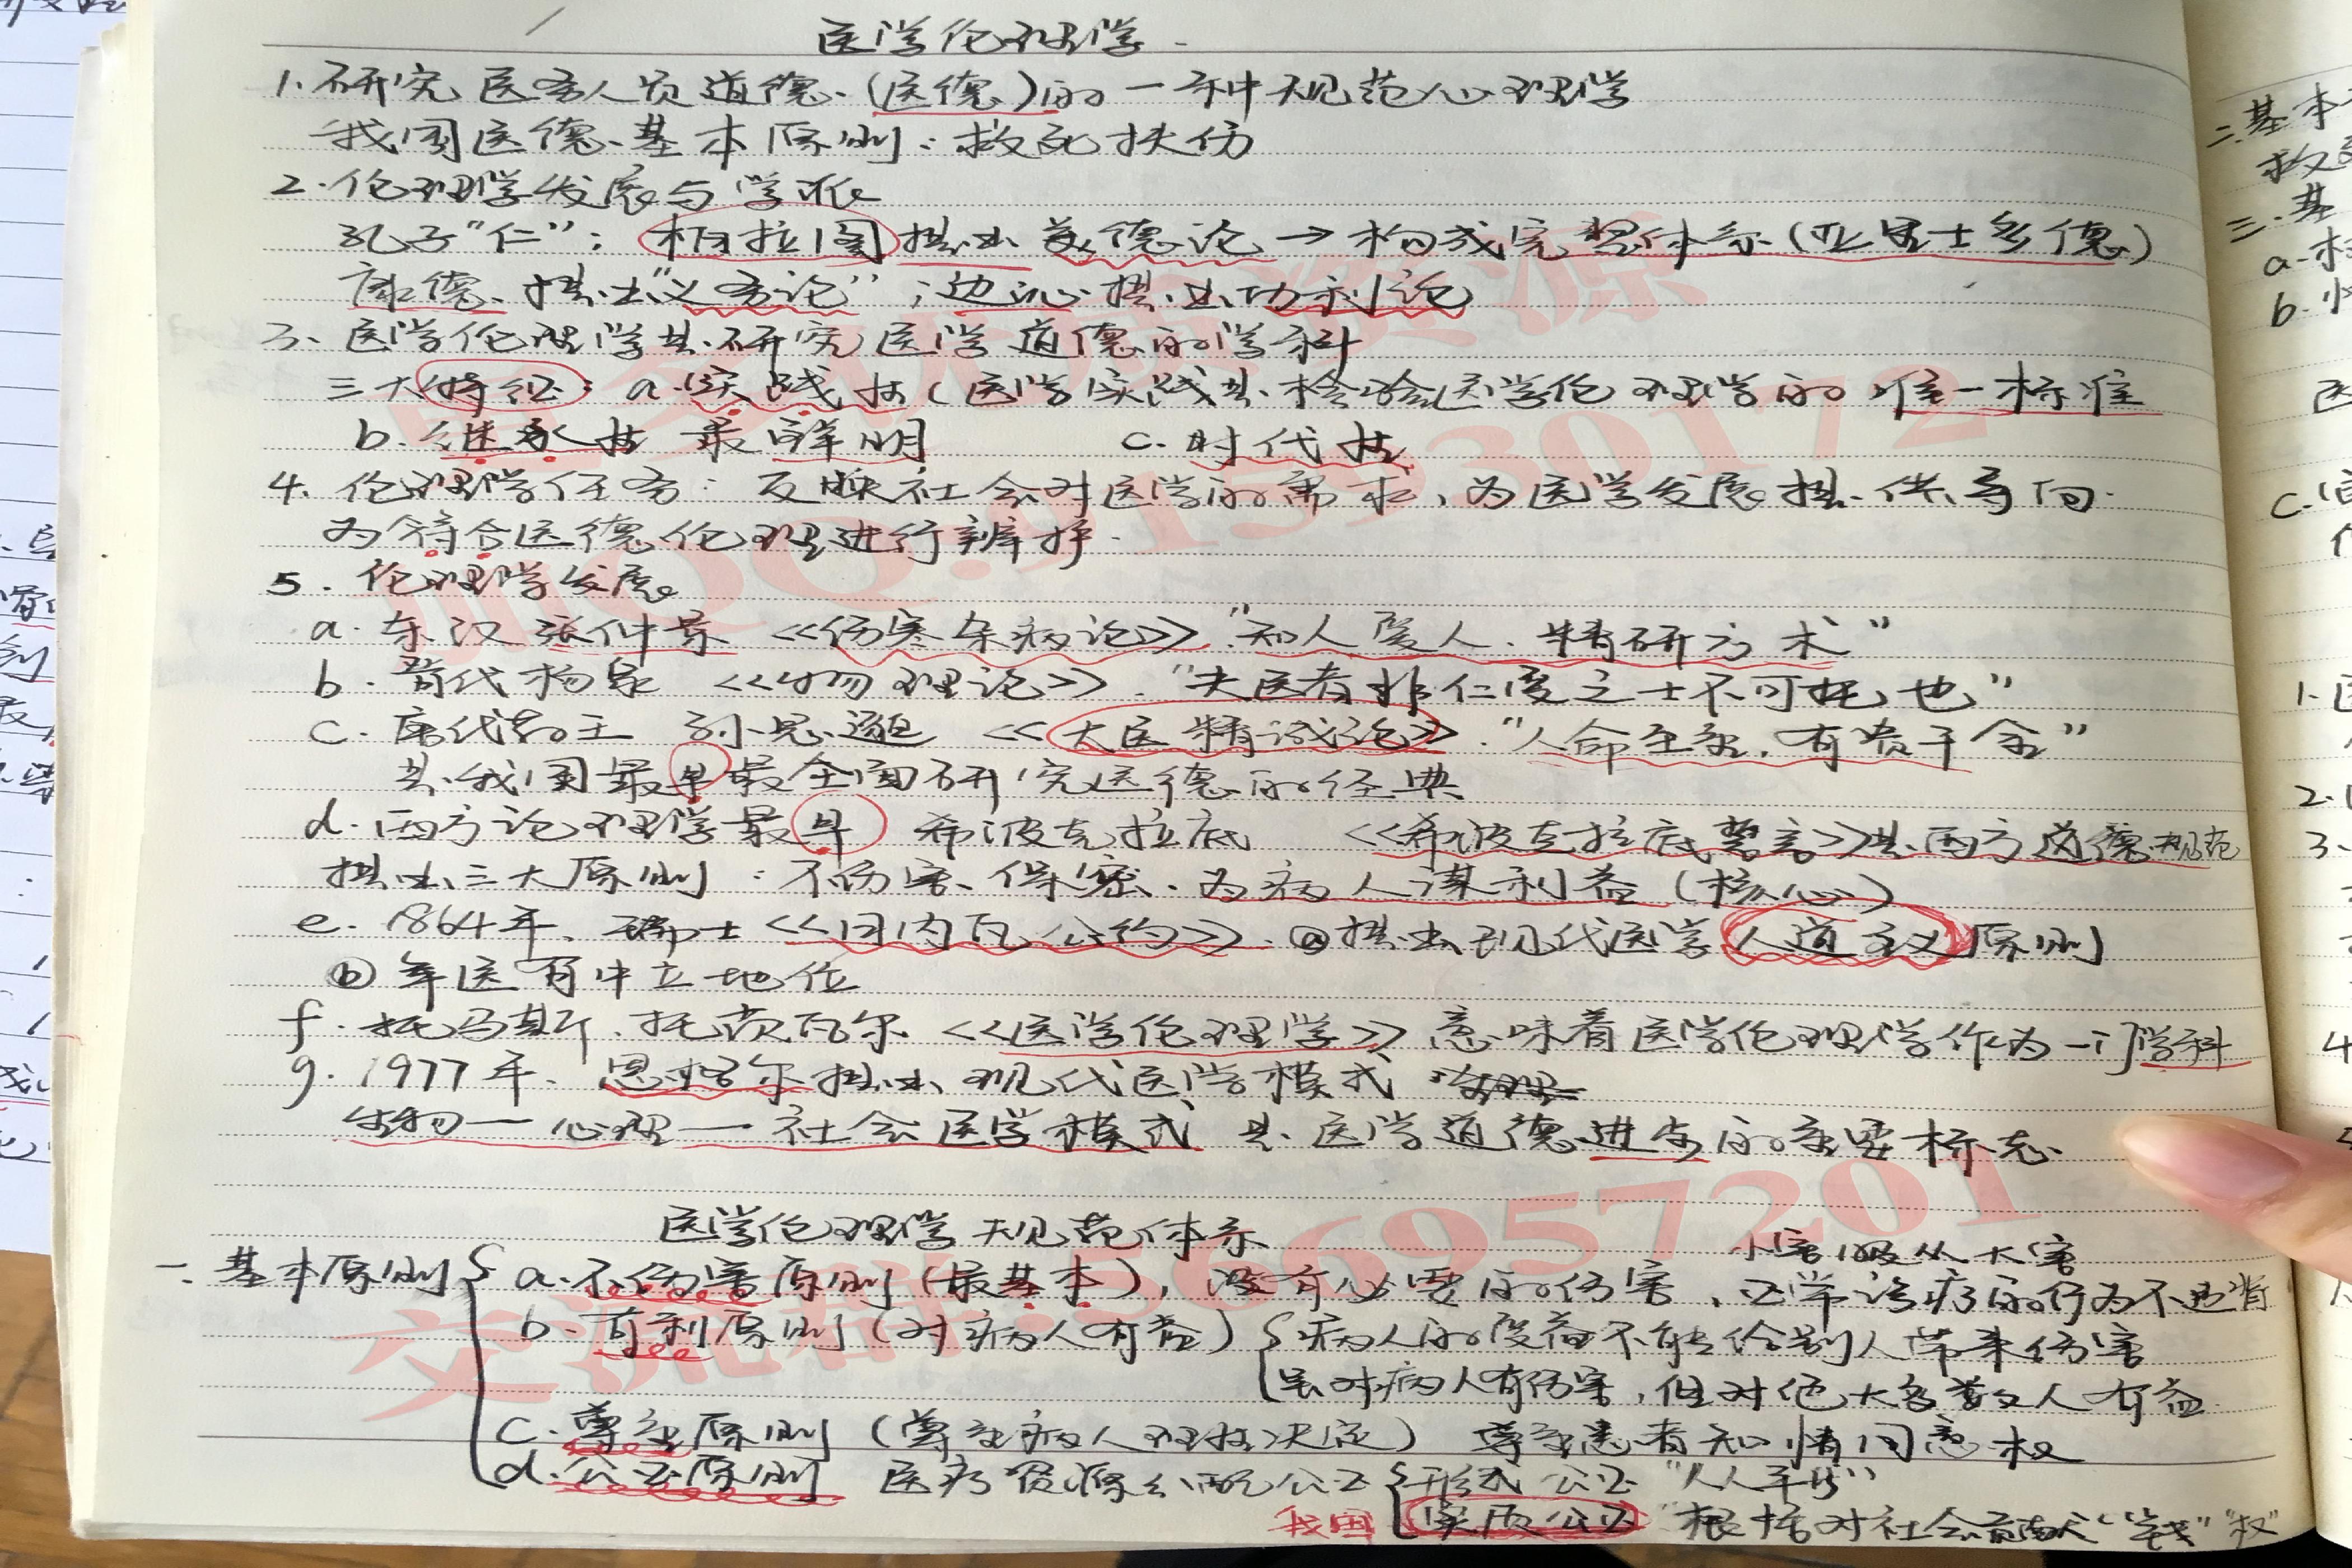 医学伦理学
1.研究医务人员道德(医德)的一种规范心理学
我国医德基本原则:救死扶伤
2.伦理学发展与学派
孔子"仁";柏拉图提出美德论→构成完整体系(亚里士多德)
康德提出"义务论";边沁提出功利论
3、医学伦理学是研究医学道德的学科
三大特征:a.实践性(医学实践是检验医学伦理学的唯一标准
b.继承性 最鲜明 c.时代性
4.伦理学任务:反映社会对医学的需求,为医学发展提供导向.
为符合医德伦理进行辨护.
5.伦理学发展
a.东汉张仲景《伤寒杂病论》"知人爱人.精研方术"
b.晋代杨泉《物理论》."夫医者非仁爱之士不可托也"
c.唐代药王 孙思邈《大医精诚论》."人命至重,有贵千金"
是我国最早最全面研究医德的经典
d.西方论理学最早 希波克拉底 《希波克拉底誓言》是西方道德规范
提出三大原则:不伤害、保密、为病人谋利益(核心)
e.1864年、瑞士《日内瓦公约》.ⓐ提出现代医学人道主义原则
ⓑ军医有中立地位
f.托马斯.托茨瓦尔《医学伦理学》意味着医学伦理学作为一门学科
g.1977年、恩格尔提出现代医学模式
生物一心理一社会医学模式 是医学道德进步的重要标志
医学伦理学规范体系
小害服从大害
一、基本原则 a.不伤害原则(最基本),没有必要的伤害,正常诊疗的行为不违背
b.有利原则(对病人有益) 病人的受益不能给别人带来伤害
虽对病人有伤害,但对绝大多数人有益
c.尊重原则(尊重病人理性决定) 尊重患者知情同意权
d.公正原则 医疗资源分配公正 形式公正"人人平等"
我国 实质公正 "根据对社会贡献""钱""权"
星空环宇资源
加QQ:915930172
交流群:566957201